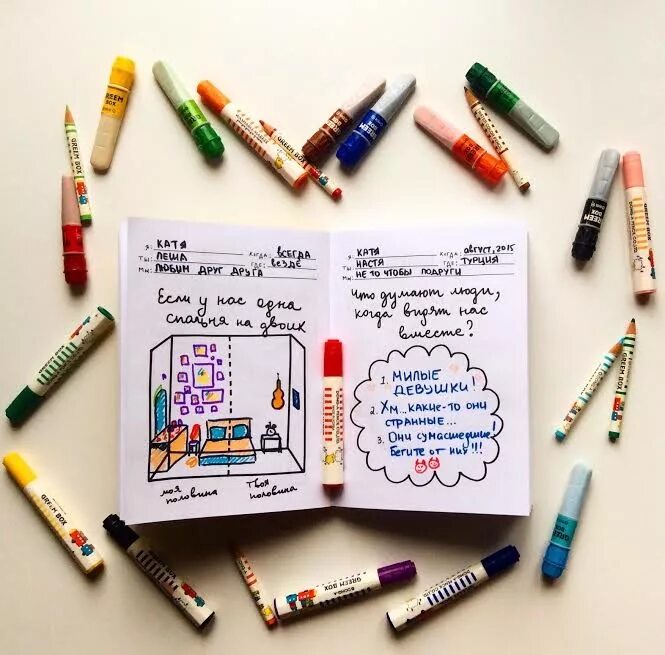 Я: КАТЯ
КОГДА: ВСЕГДА
ТЫ: ЛЕША
ГДЕ: ВЕЗДЕ
МЫ: ЛЮБИМ ДРУГ ДРУГА
Если у нас одна
спальня на двоих
моя половина
твоя половина
Я: КАТЯ
КОГДА: АВГУСТ, 2015
ТЫ: НАСТЯ
ГДЕ: ТУРЦИЯ
МЫ: НЕ ТО ЧТОБЫ ПОДРУГИ
что думают люди,
когда видят нас
вместе?
1. МИЛЫЕ
ДЕВУШКИ!
2. ХМ... КАКИЕ-ТО ОНИ
СТРАННЫЕ...
3. ОНИ СУМАСШЕДШИЕ!
Бегите от них!!!
GREEM BOX
GREEM BOX
GREEM BOX
GREEM BOX
GREEM BOX
GREEM BOX
GREEM BOX